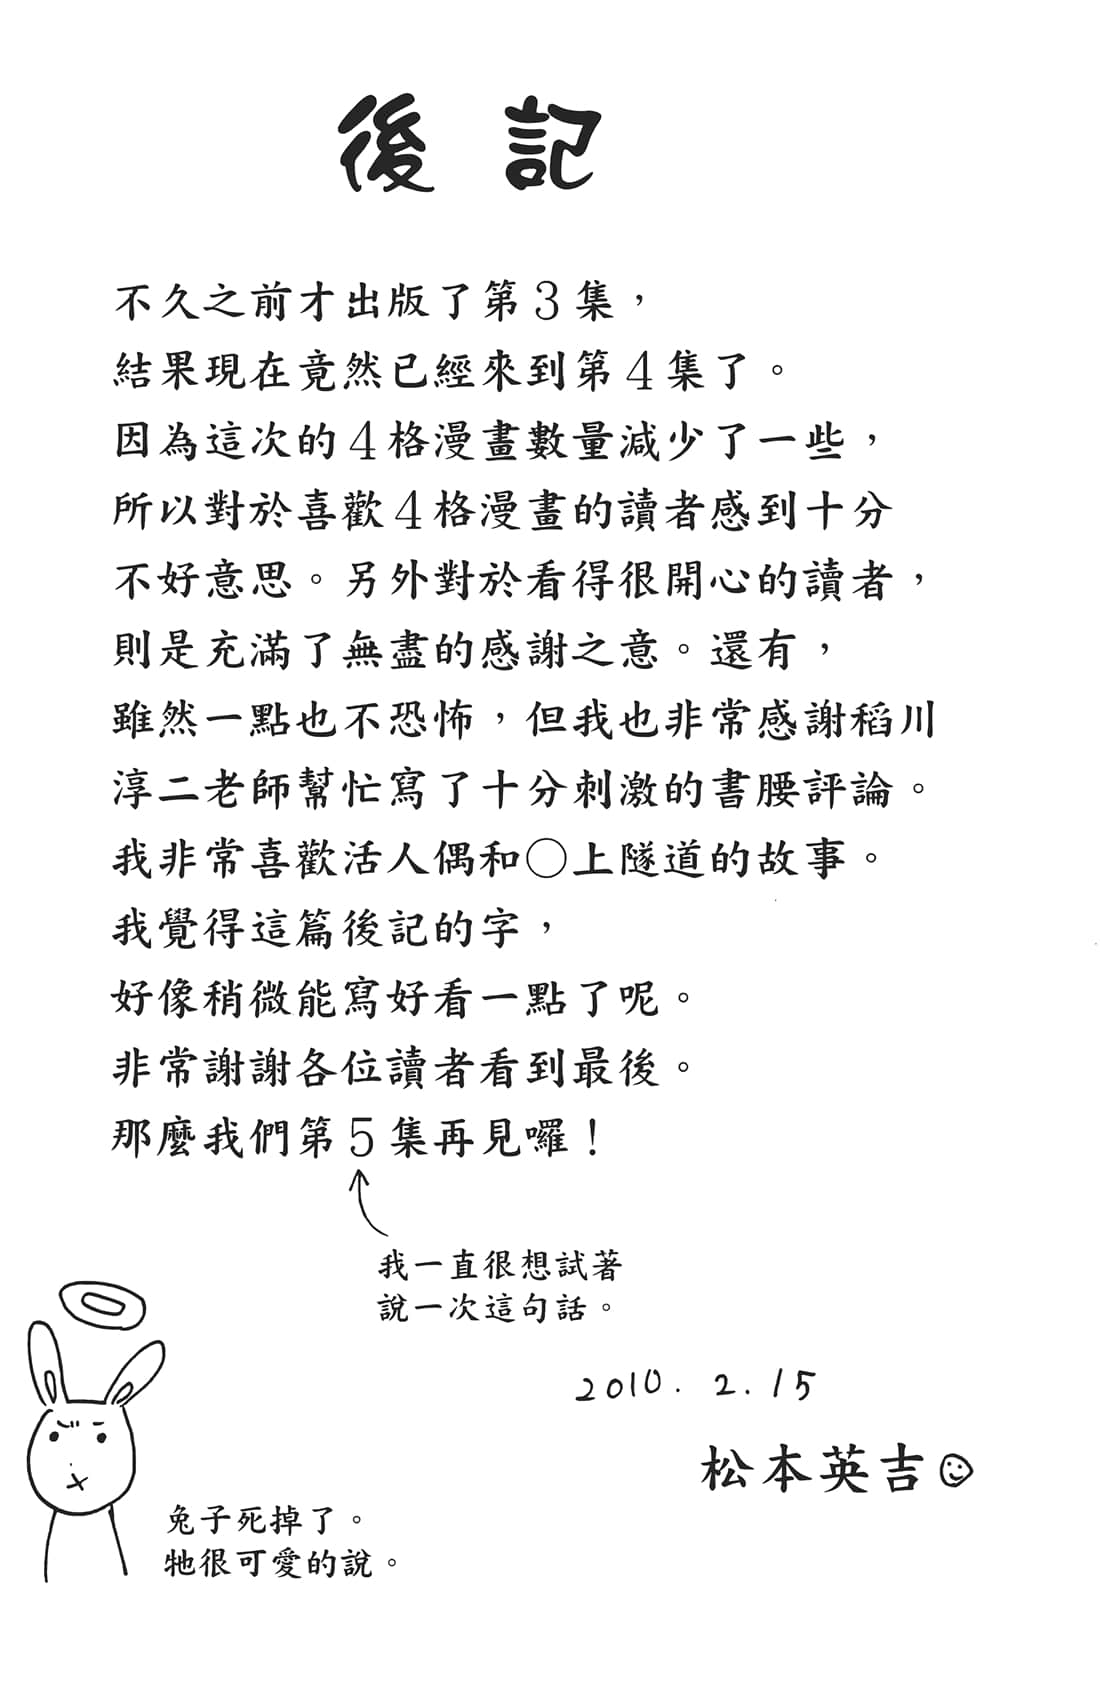 後記
不久之前才出版了第3集，
結果現在竟然已經來到第4集了。
因為這次的4格漫畫數量減少了一些，
所以對於喜歡4格漫畫的讀者感到十分
不好意思。另外對於看得很開心的讀者，
則是充滿了無盡的感謝之意。還有，
雖然一點也不恐怖，但我也非常感謝稻川
淳二老師幫忙寫了十分刺激的書腰評論。
我非常喜歡活人偶和○上隧道的故事。
我覺得這篇後記的字，
好像稍微能寫好看一點了呢。
非常謝謝各位讀者看到最後。
那麼我們第5集再見囉！
我一直很想試著
說一次這句話。
2010. 2. 15
松本英吉
兔子死掉了。
牠很可愛的說。